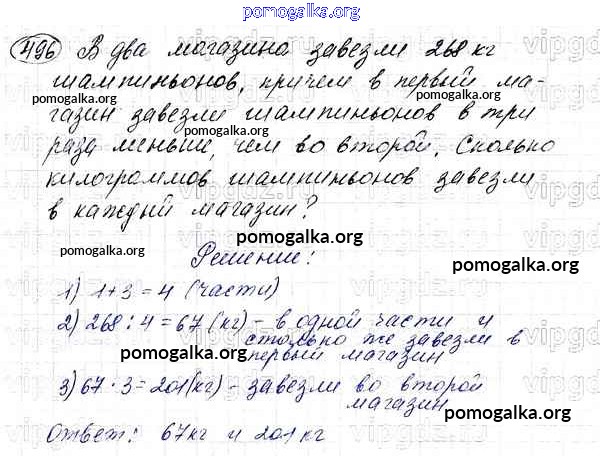 pomogalka.org
496 В два магазина завезли 268 кг
шампиньонов, причем в первый ма-
pomogalka.org pomogalka.org
газин завезли шампиньонов в три
pomogalka.org
раза меньше, чем во второй. Сколько
килограммов шампиньонов завезли
pomogalka.org
в каждый магазин?
pomogalka.org pomogalka.org pomogalka.org
Решение:
1) 1+3=4 (части)
pomogalka.org
2) 268:4=67 (кг) - в одной части и
столько же завезли в
pomogalka.org
первый магазин
3) 67·3=201(кг) - завезли во второй
магазин
pomogalka.org
Ответ: 67кг и 201 кг